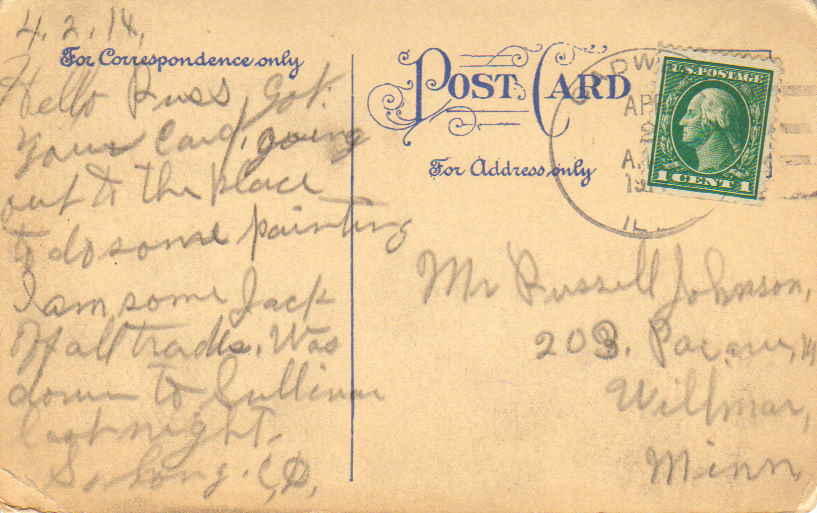 4.2.14.
For Correspondence only
Hello Russ, Got
Your Card, going
out to the place
to do some painting
I am some Jack
Of all trades. Was
down to Sullivan
last night.
So Long.
POST CARD
For Address only
AP
A.
IL
U.S. POSTAGE
1 CENT 1
Mr Russell Johnson,
203.
Willmar,
Minn